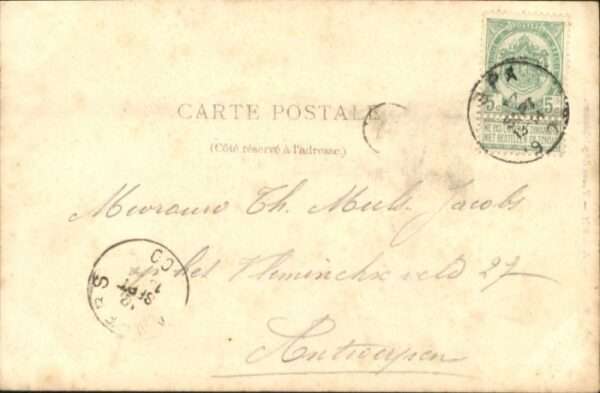 SPA
5 5
NE PAS LIVRER LE DIMANCHE
NIET BESTELLEN OP ZONDAG
CARTE POSTALE
(Côté réservé à l'adresse.)
Mevrouw Th. Jacobs
op het veld 27
Antwerpen
SEPT